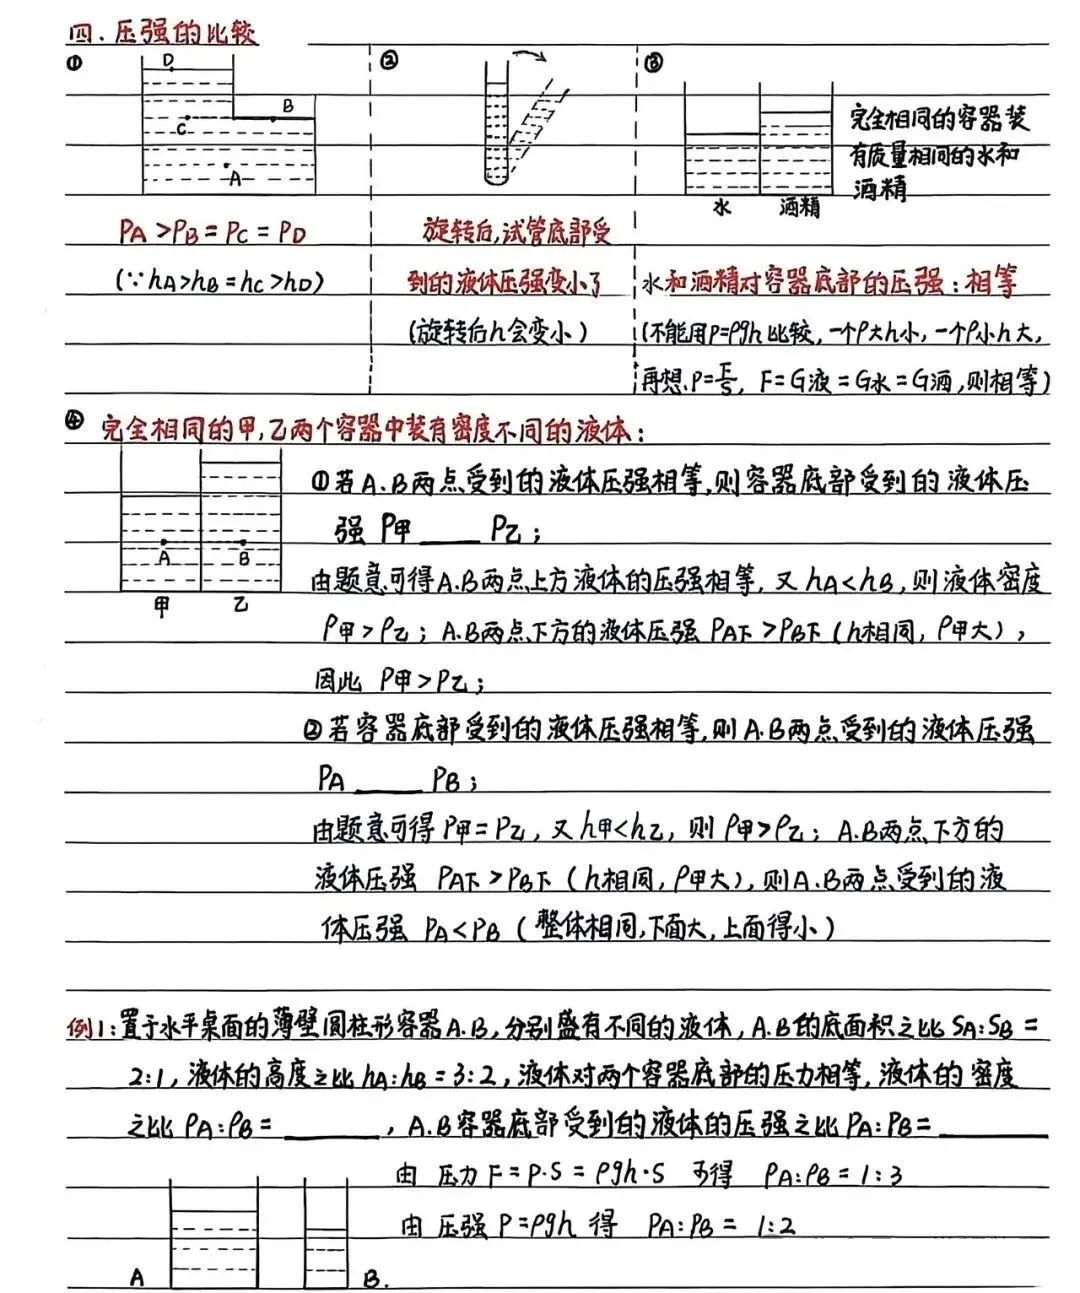 四.压强的比较
①
D
B
C
A
PA>PB=PC=PD
(∵hA>hB=hC>hD)
②
旋转后,试管底部受
到的液体压强变小了
(旋转后h会变小)
③
水 酒精
完全相同的容器装
有质量相同的水和
酒精
水和酒精对容器底部的压强:相等
(不能用P=ρgh比较,一个ρ大h小,一个ρ小h大,
再想.P=F/S, F=G液=G水=G酒,则相等)
④ 完全相同的甲,乙两个容器中装有密度不同的液体:
A B
甲 乙
①若A.B两点受到的液体压强相等,则容器底部受到的液体压
强 P甲 ____ P乙;
由题意可得A.B两点上方液体的压强相等,又hA<hB,则液体密度
ρ甲>ρ乙;A.B两点下方的液体压强 PA下>PB下(h相同,ρ甲大),
因此 P甲>P乙;
②若容器底部受到的液体压强相等,则A.B两点受到的液体压强
PA ____ PB;
由题意可得P甲=P乙,又h甲<h乙,则ρ甲>ρ乙;A.B两点下方的
液体压强 PA下>PB下(h相同,ρ甲大),则A.B两点受到的液
体压强 PA<PB(整体相同,下面大,上面得小)
例1:置于水平桌面的薄壁圆柱形容器A.B,分别盛有不同的液体,A.B的底面积之比SA:SB=
2:1,液体的高度之比hA:hB=3:2,液体对两个容器底部的压力相等,液体的密度
之比ρA:ρB=______,A.B容器底部受到的液体的压强之比PA:PB=______
由 压力F=P·S=ρgh·S 可得 ρA:ρB=1:3
由 压强P=ρgh 得 PA:PB= 1:2
A B.